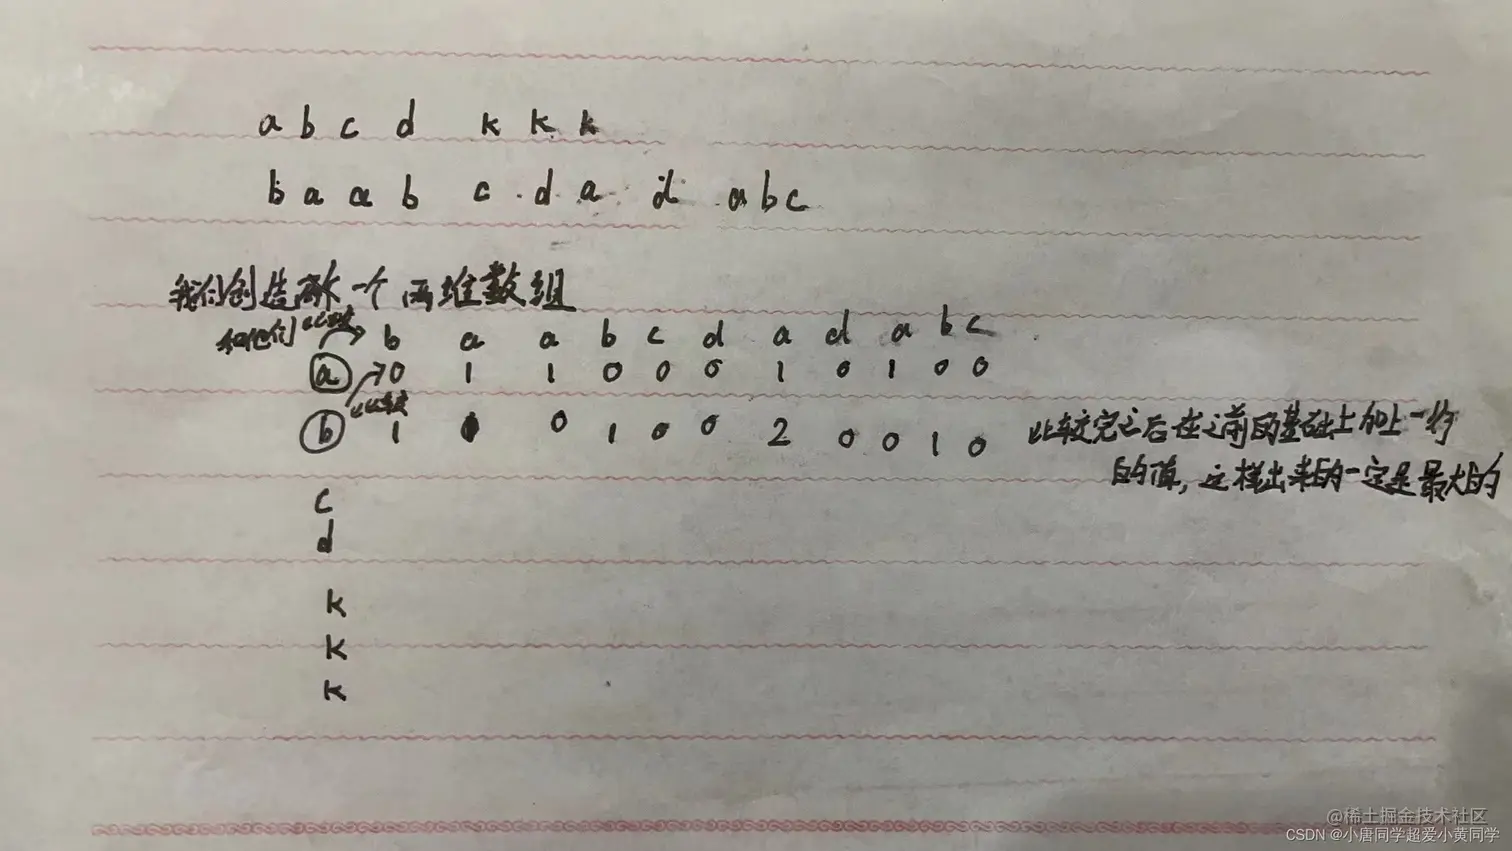 a b c d k k k
b a a b c d a d a b c
我们创造一个两堆数组
和他们 比较 b a a b c d a d a b c
a 0 1 1 0 0 0 1 0 1 0 0
比较
b 1 0 0 1 0 0 2 0 0 1 0 比较完之后在之前的基础上加上一行
的值,这样出来的一定是最大的
c
d
k
k
k
@稀土掘金技术社区
CSDN @小唐同学超爱小黄同学